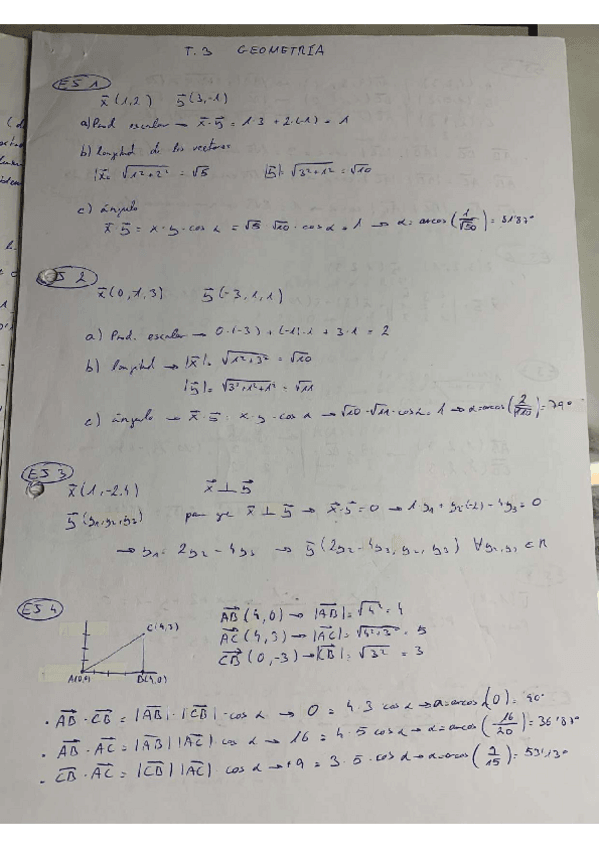 T. 3 GEOMETRÍA
EJ 1
x̄(1,2) ȳ(3,-1)
a) Prod escalar → x̄·ȳ = 1·3 + 2·(-1) = 1
b) longitud de los vectores
|x̄| = √1²+2² = √5 |ȳ| = √3²+1² = √10
c) ángulo
x̄·ȳ = x·y·cos α = √5 √10 · cos α = 1 → α = arcos (1/√50) = 81'87°
EJ 2
x̄(0,-1,3) ȳ(-3,1,1)
a) Prod. escalar → 0·(-3) + (-1)·1 + 3·1 = 2
b) longitud → |x̄| = √1²+3² = √10
|ȳ| = √3²+1²+1² = √11
c) ángulo → x̄·ȳ = x·y·cos α → √10·√11·cos α = 1 → α = arcos (2/√110) = 79°
EJ 3
x̄(1,-2,4) x̄ ⊥ ȳ
ȳ(y₁,y₂,y₃) para que x̄ ⊥ ȳ → x̄·ȳ = 0 → 1 y₁ + y₂(-2) - 4y₃ = 0
→ y₁ = 2y₂ - 4y₃ → ȳ(2y₂ - 4y₃, y₂, y₃) ∀y₂,y₃ ∈ R
EJ 4
C(4,3)
A(0,0) B(4,0)
AB (4,0) → |AB| = √4² = 4
AC (4,3) → |AC| = √4²+3² = 5
CB (0,-3) → |CB| = √3² = 3
· AB · CB = |AB|·|CB| · cos α → 0 = 4·3 cos α → α = arcos (0) = 90°
· AB · AC = |AB| |AC| · cos α → 16 = 4·5 cos α → α = arcos (16/20) = 36'87°
· CB · AC = |CB| |AC| · cos α → 9 = 3·5 · cos α → α = arcos (9/15) = 53'13°